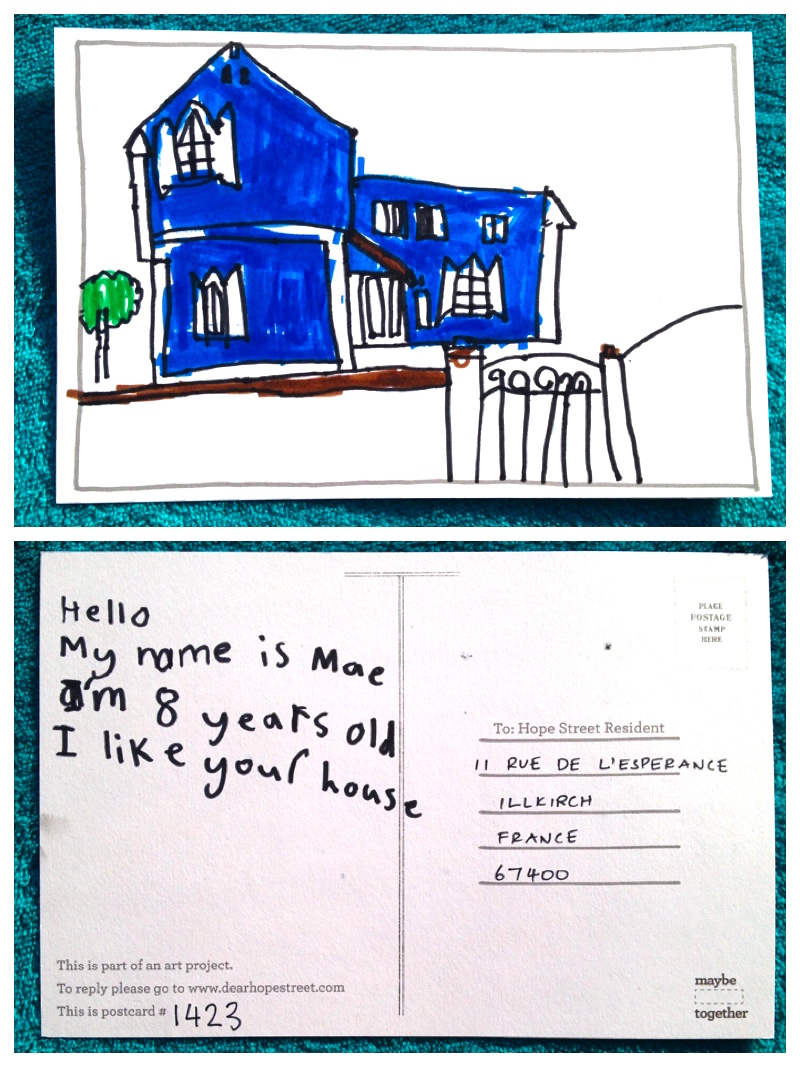 Hello
My name is Mae
I'm 8 years old
I like your house
This is part of an art project.
To reply please go to www.dearhopestreet.com
This is postcard # 1423
PLACE
POSTAGE
STAMP
HERE
To: Hope Street Resident
11 RUE DE L'ESPERANCE
ILLKIRCH
FRANCE
67400
maybe
together